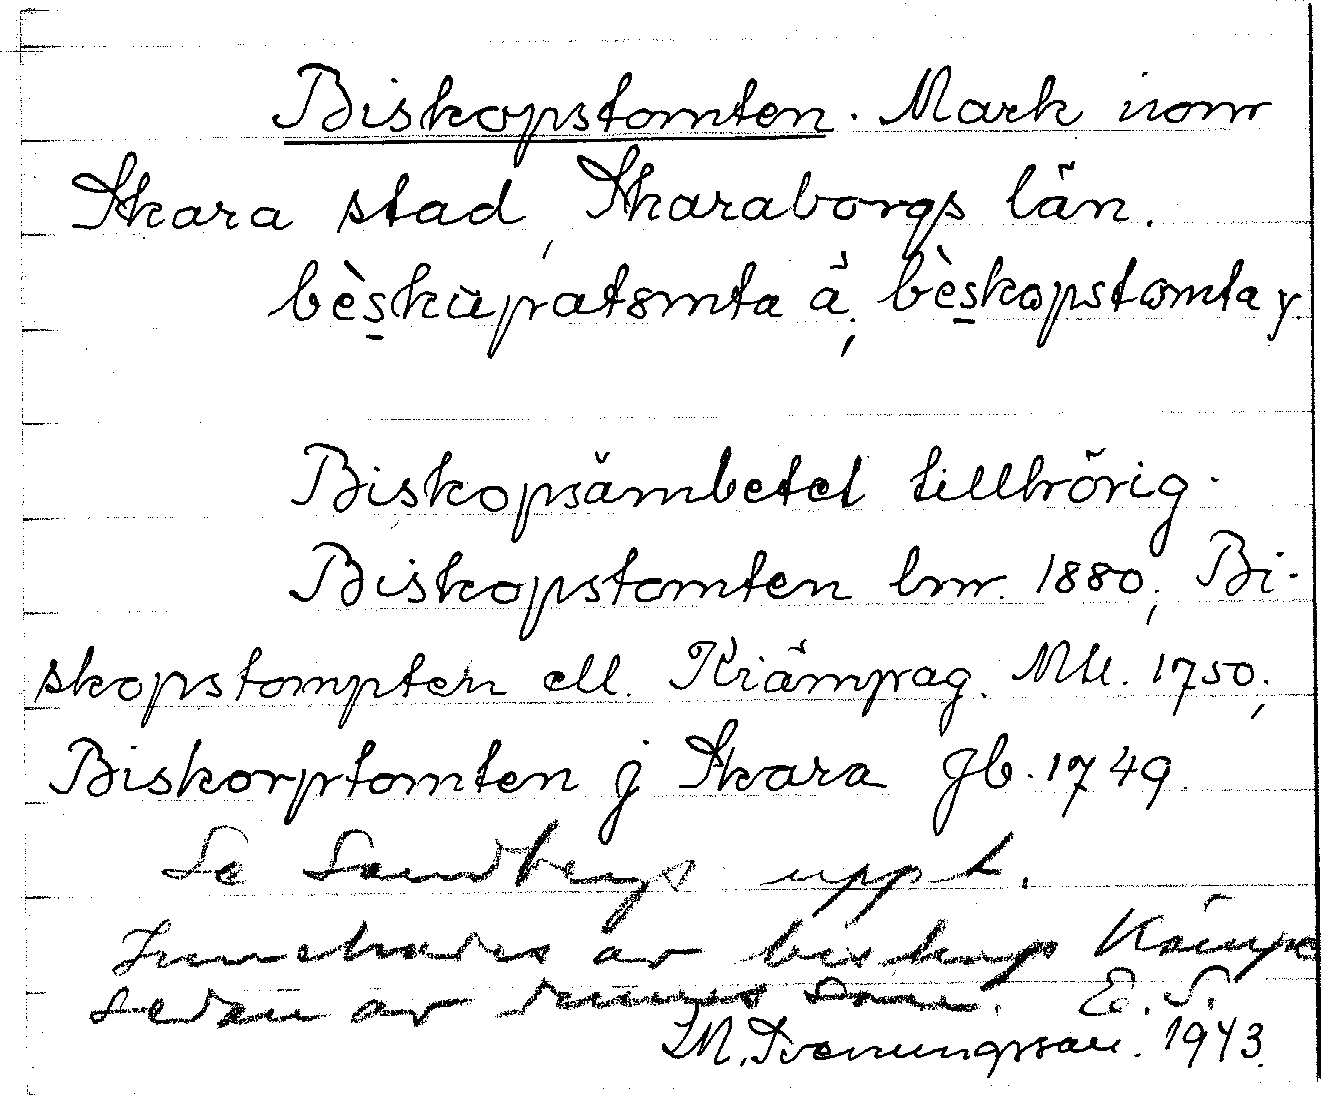 Biskopstomten. Mark inom
Skara stad, Skaraborgs län.
bèskùpatomta ä, bèskopstomta y.
Biskopsämbetet tillhörig.
Biskopstomten lmr. 1880; Bi-
skopstompten ell. Kiämpag. Mtl. 1750;
Biskorptomten j Skara Jb. 1749.
Se Sandbergs uppt.
Innehades av biskop Kämpe
sedan av dennes son. E. S.
I.M. Svenungsson. 1943.